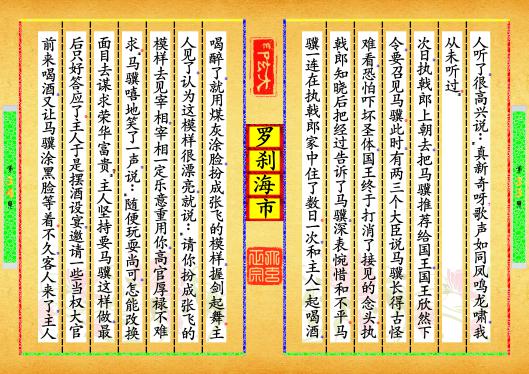 人听了很高兴说：真新奇呀歌声如同凤鸣龙啸我
从未听过。
次日执戟郎上朝去把马骥推荐给国王国王欣然下
令要召见马骥此时有两三个大臣说马骥长得古怪
难看恐怕吓坏圣体国王终于打消了接见的念头执
戟郎知晓后把经过告诉了马骥深表惋惜和不平马
骥一连在执戟郎家中住了数日一次和主人一起喝酒
罗刹海市
喝醉了就用煤灰涂脸扮成张飞的模样握剑起舞主
人见了认为这模样很漂亮就说：请你扮成张飞的
模样去见宰相宰相一定乐意重用你高官厚禄不难
求。马骥嘻地笑了一声说：随便玩耍尚可怎能改换
面目去谋求荣华富贵，主人坚持要马骥这样做最
后只好答应了主人于是摆酒设宴邀请一些当权大官
前来喝酒又让马骥涂黑脸等着不久客人来了主人